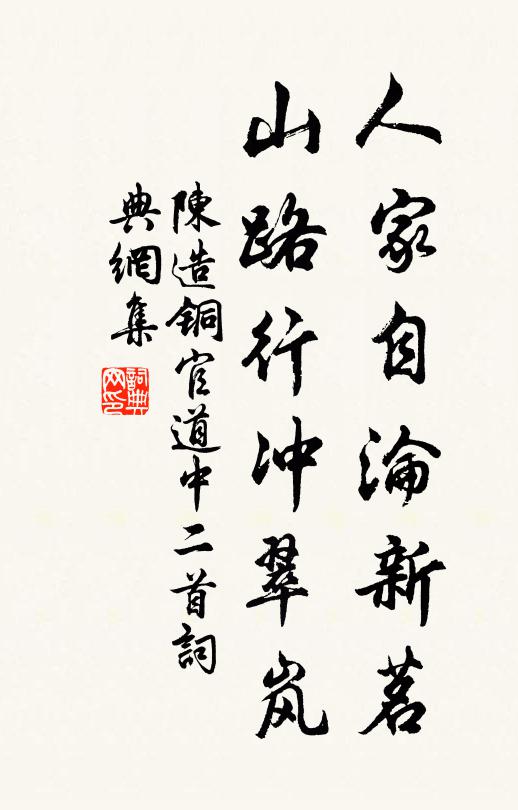 人家自淪新茗
山路行冲翠岚
陳造銅官道中二首詞
典網集
詞典網印